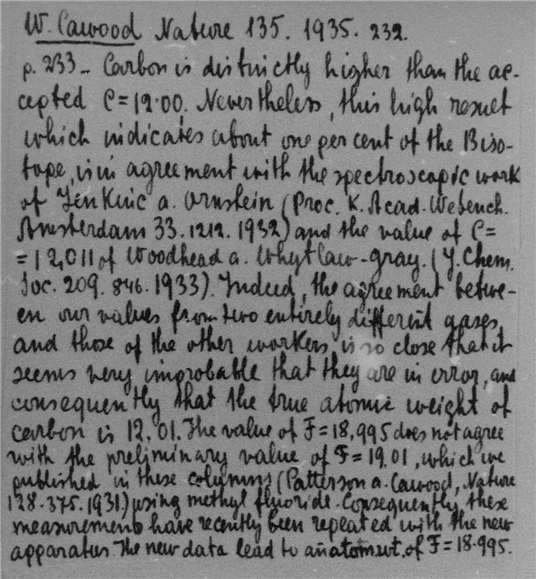 W. Cawood Nature 135. 1935. 232.
p. 233 - Carbon is distinctly higher than the ac-
cepted C=12.00. Nevertheless, this high result
which indicates about one per cent of the 13 iso-
tope, is in agreement with the spectroscopic work
of Jenkins a. Ornstein (Proc. K. Acad. Wetench.
Amsterdam 33. 1212. 1932) and the value of C=
=12,011 of Woodhead a. Whytlaw-Gray. (J. Chem.
Soc. 209. 846. 1933). Indeed, the agreement betwe-
en our values from two entirely different gases,
and those of the other workers is so close that it
seems very improbable that they are in error, and
consequently that the true atomic weight of
carbon is 12.01. The value of F=18,995 does not agree
with the preliminary value of F=19.01, which we
published in these columns (Patterson a. Cawood, Nature
128. 375. 1931) using methyl fluoride. Consequently, these
measurements have recently been repeated with the new
apparatus. The new data lead to an atom.wt. of F=18.995.